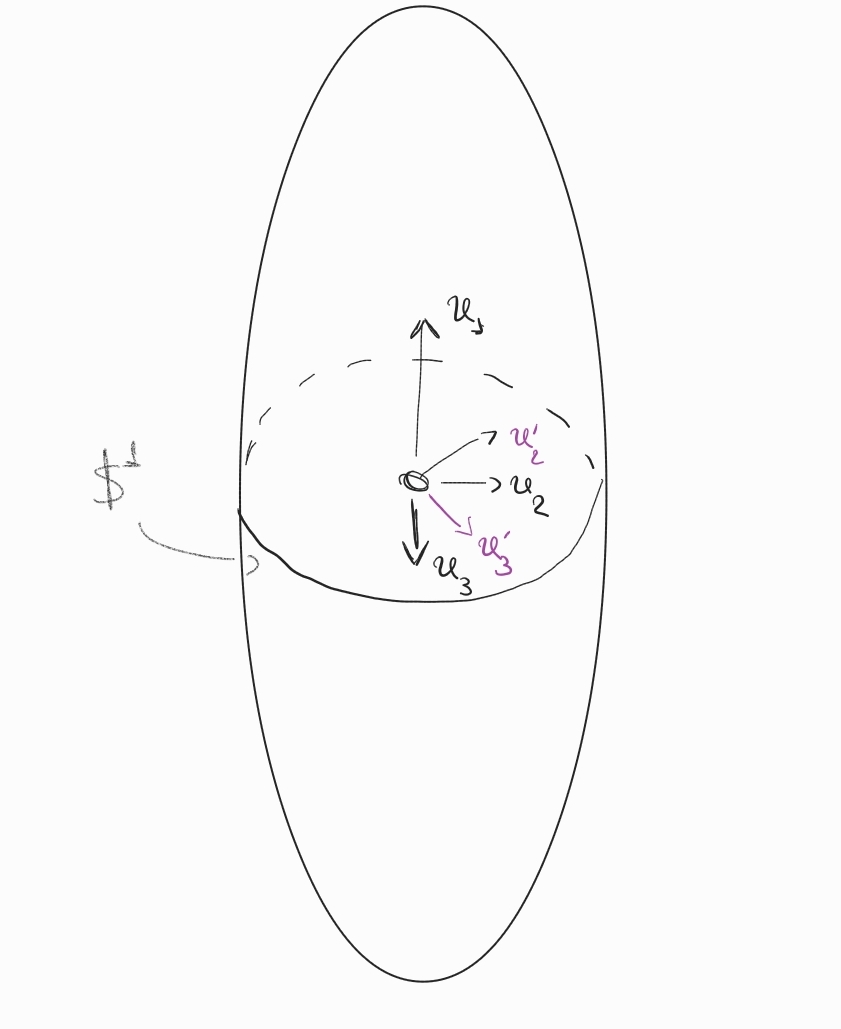 u₁
u'₂
$¹
u₂
u'₃
u₃